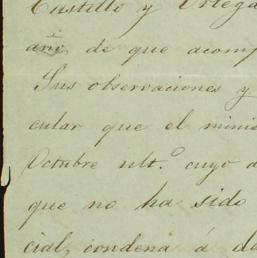 Castillo y Ortega
de que acomp
Sus observaciones y
cular que el minis
Octubre ult.º cuyo
que no ha sido
cial, condena á de